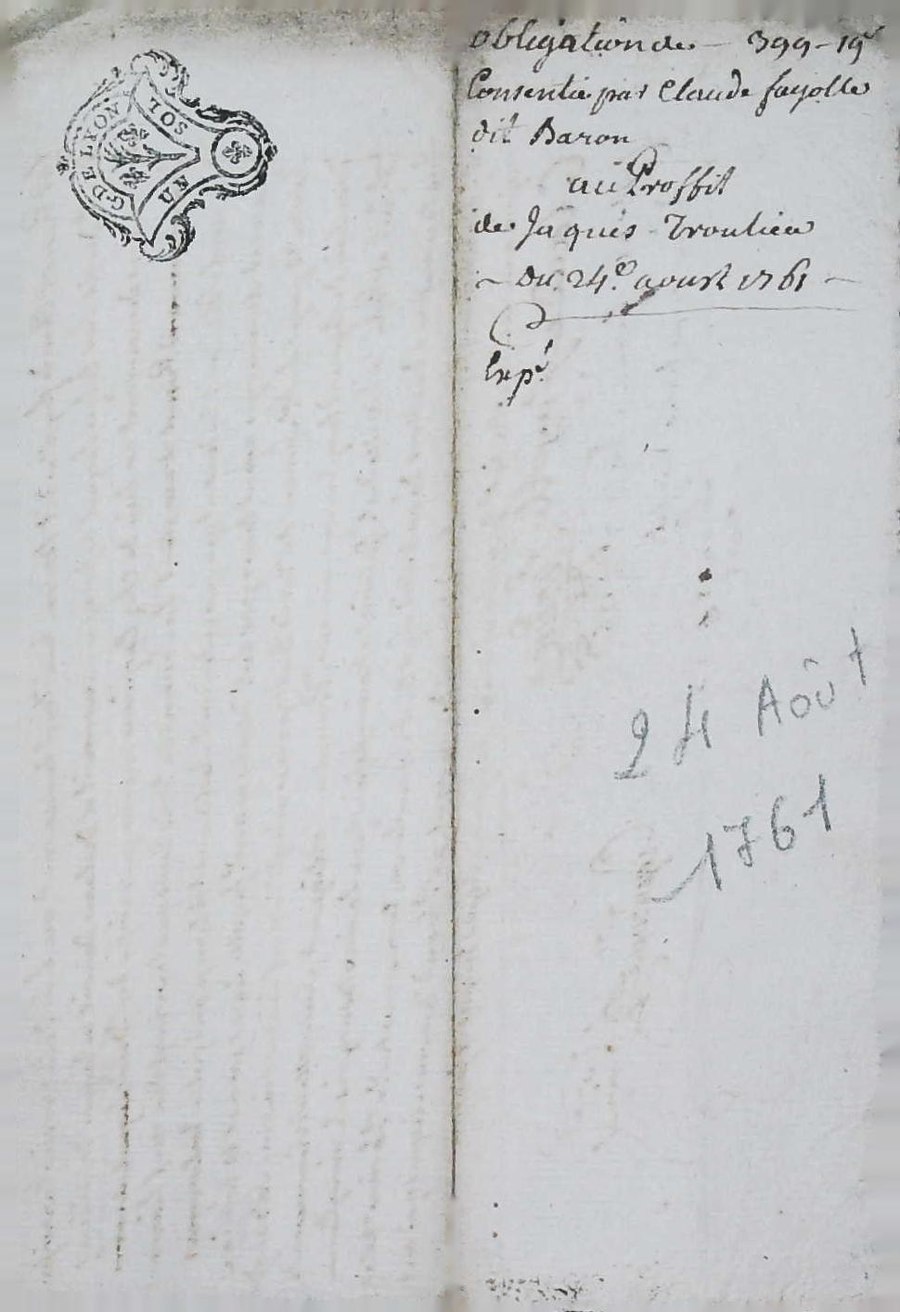 G. DE LYON
SOL
obligation de - 399 - 19s
Consentie par Claude fayolle
dit Baron
au Proffit
de Jaques Troulieu
~ du 24e aoust 1761 ~
Exp.é
24 Août
1761